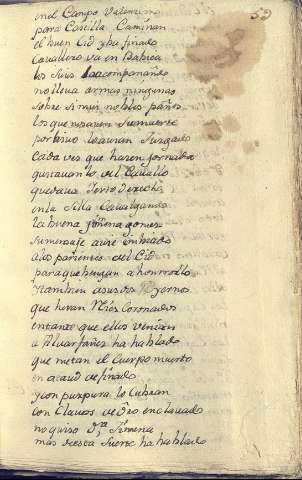 59
en el Campo Valenzino
para Castilla Caminan
el buen Cid yha finado
Cavallero va en Babica
los suis acompañando
no lleva armas ningunas
sobre si muy nobles paños
los que su muerte
por bivo lo avian Juzgado
Cada ves que hacen Jornada
quitavanlo del Cavallo
quedava Yerto Derecho
en la Silla Cavalgando
la buena Ximena gomez
su mensaje avie embiado
a los parientes del Cid
para que bengan a honrrallo
Y tambien a sus dos Yernos
que heran Reies Coronados
entanto que ellos venian
Alvar fañez ha hablado
que metan el Cuerpo muerto
en ataud de finado
y con purpura lo Cubran
con Clavos de oro enclavado
no quiso D.ª Ximena
mas desta Suerte ha hablado